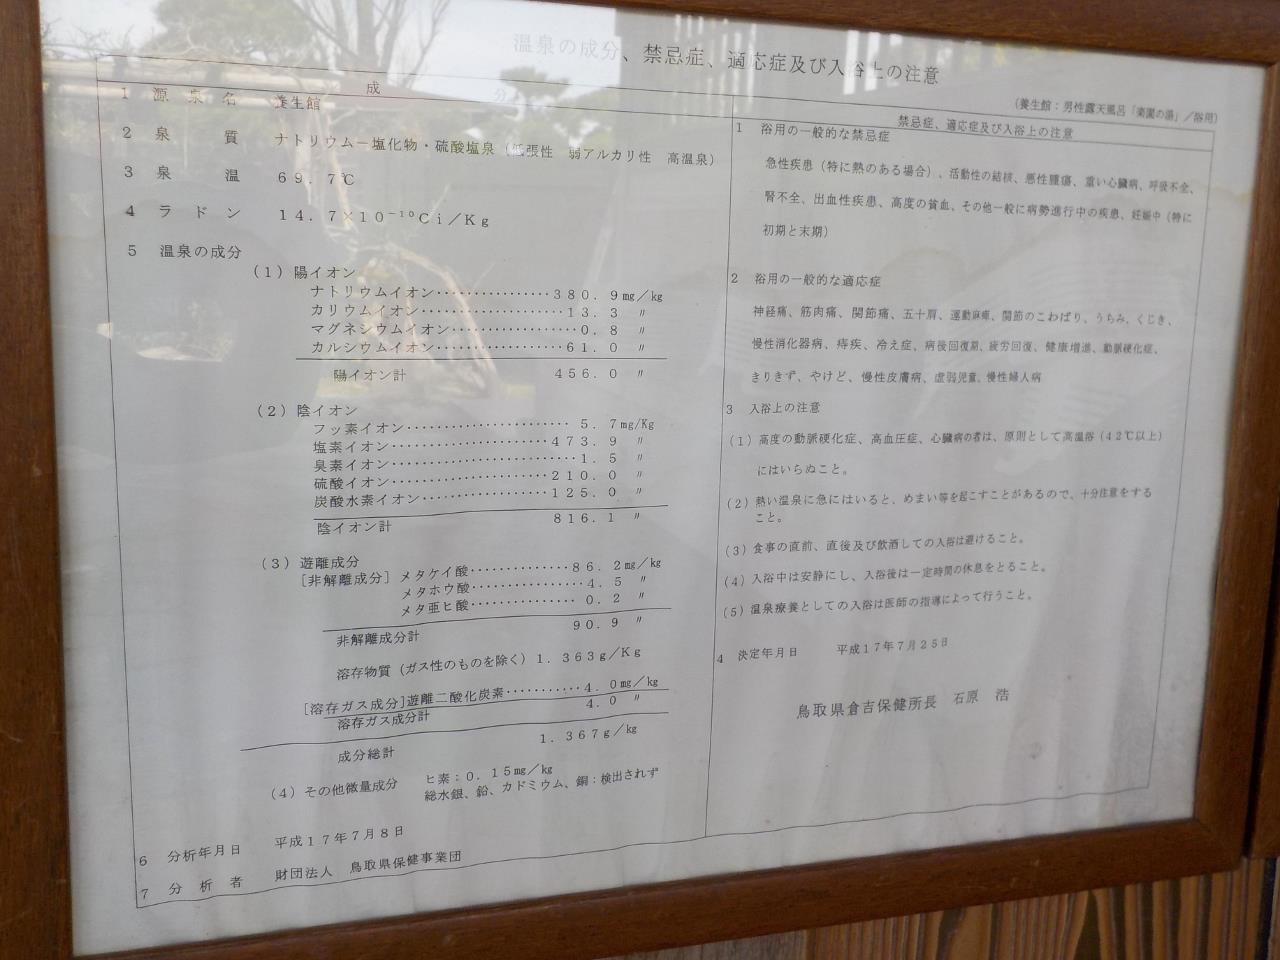 温泉の成分、禁忌症、適応症及び入浴上の注意
(養生館:男性露天風呂「楽園の湯」/浴用)
成 分
1 源泉名 養生館
2 泉質 ナトリウム−塩化物・硫酸塩泉(低張性 弱アルカリ性 高温泉)
3 泉温 69.7℃
4 ラドン 14.7×10⁻¹⁰Ci/Kg
5 温泉の成分
(1)陽イオン
ナトリウムイオン・・・・・・・・・・・・・・・380.9mg/kg
カリウムイオン・・・・・・・・・・・・・・・・・・13.3 〃
マグネシウムイオン・・・・・・・・・・・・・・・・0.8 〃
カルシウムイオン・・・・・・・・・・・・・・・・61.0 〃
陽イオン計 456.0 〃
(2)陰イオン
フッ素イオン・・・・・・・・・・・・・・・・・・・・ 5.7mg/Kg
塩素イオン・・・・・・・・・・・・・・・・・・・・473.9 〃
臭素イオン・・・・・・・・・・・・・・・・・・・・・・・1.5 〃
硫酸イオン・・・・・・・・・・・・・・・・・・・・210.0 〃
炭酸水素イオン・・・・・・・・・・・・・・・・125.0 〃
陰イオン計 816.1 〃
(3)遊離成分
[非解離成分]メタケイ酸・・・・・・・・・・・・・86.2mg/kg
メタホウ酸・・・・・・・・・・・・・・・4.5 〃
メタ亜ヒ酸・・・・・・・・・・・・・・ 0.2 〃
非解離成分計 90.9 〃
溶存物質(ガス性のものを除く)1.363g/Kg
[溶存ガス成分]遊離二酸化炭素・・・・・・・・・・・4.0mg/kg
溶存ガス成分計 4.0 〃
成分総計 1.367g/kg
(4)その他微量成分 ヒ素:0.15mg/kg
総水銀、鉛、カドミウム、銅:検出されず
6 分析年月日 平成17年7月8日
7 分析者 財団法人 鳥取県保健事業団
禁忌症、適応症及び入浴上の注意
1 浴用の一般的な禁忌症
急性疾患(特に熱のある場合)、活動性の結核、悪性腫瘍、重い心臓病、呼吸不全、
腎不全、出血性疾患、高度の貧血、その他一般に病勢進行中の疾患、妊娠中(特に
初期と末期)
2 浴用の一般的な適応症
神経痛、筋肉痛、関節痛、五十肩、運動麻痺、関節のこわばり、うちみ、くじき、
慢性消化器病、痔疾、冷え症、病後回復期、疲労回復、健康増進、動脈硬化症、
きりきず、やけど、慢性皮膚病、虚弱児童、慢性婦人病
3 入浴上の注意
(1)高度の動脈硬化症、高血圧症、心臓病の者は、原則として高温浴(42℃以上)
にはいらぬこと。
(2)熱い温泉に急にはいると、めまい等を起こすことがあるので、十分注意をする
こと。
(3)食事の直前、直後及び飲酒しての入浴は避けること。
(4)入浴中は安静にし、入浴後は一定時間の休息をとること。
(5)温泉療養としての入浴は医師の指導によって行うこと。
4 決定年月日 平成17年7月25日
鳥取県倉吉保健所長 石原 浩